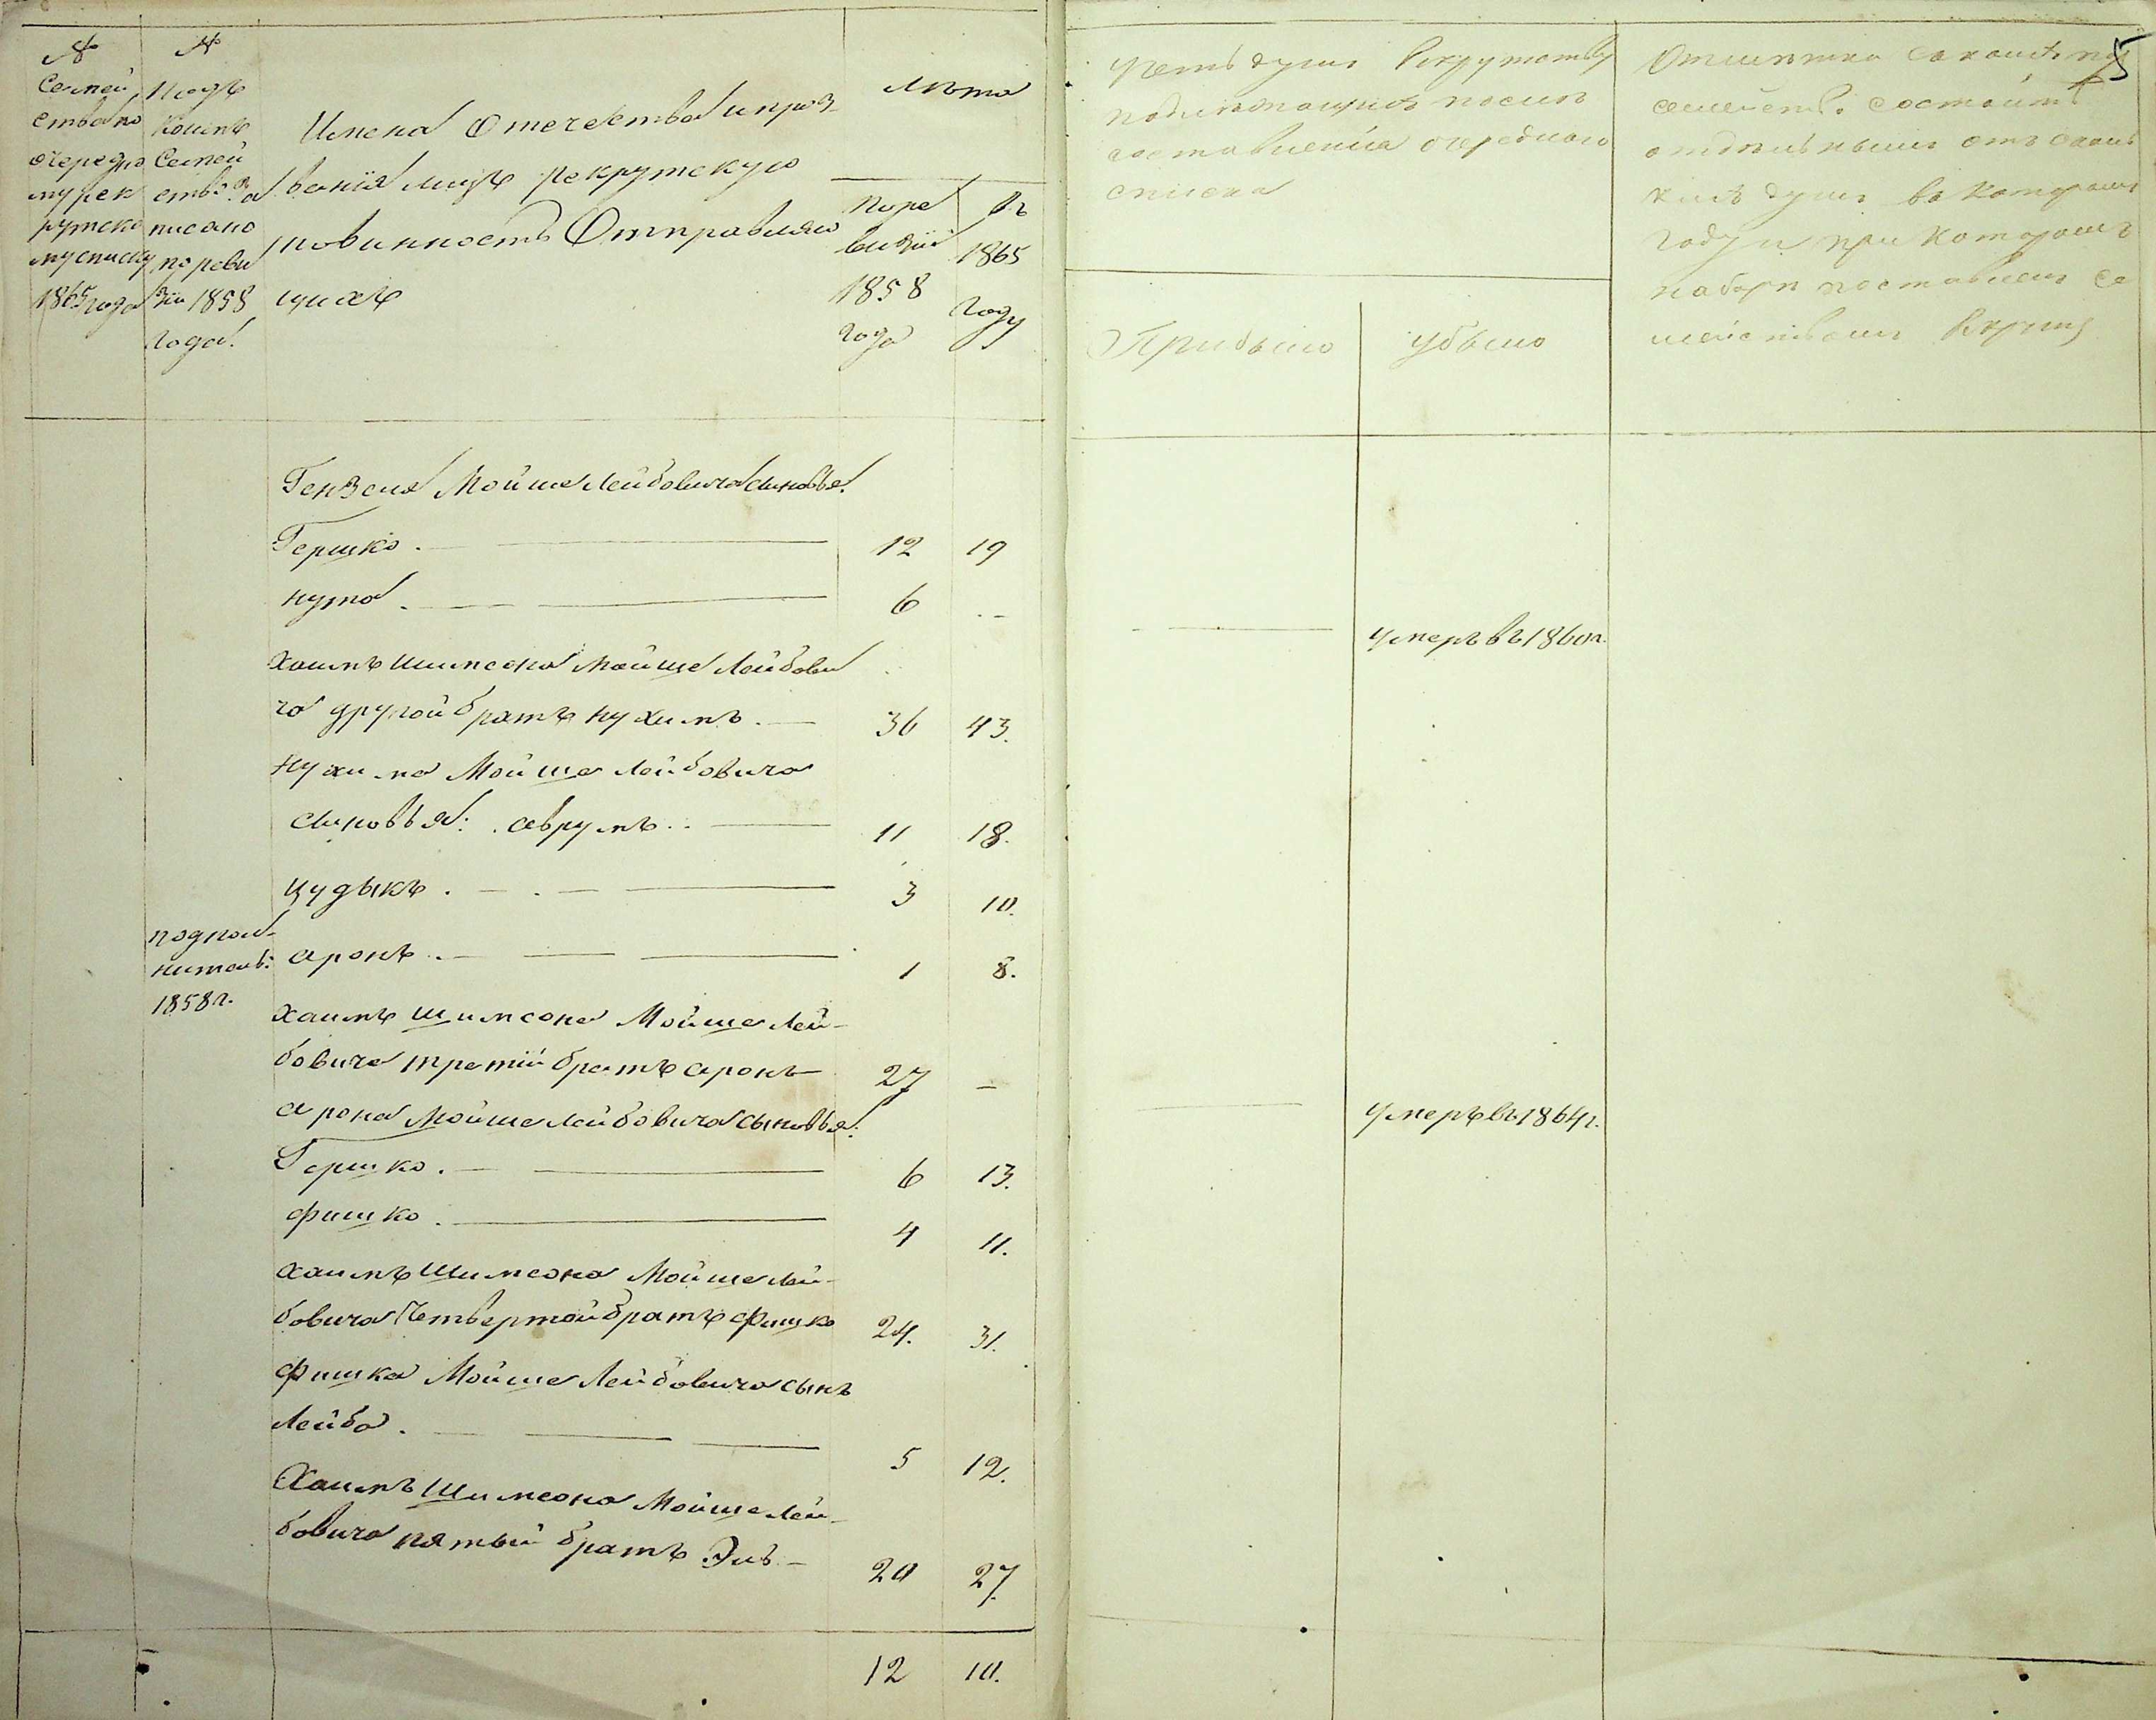 №
Семей
ства по
очередно
му рек
рутско
му списку
1865 года
№
Подъ
коимъ
Семей
ство за
писано
по реви
зіи 1858
года.
Имена Отечества и проз
ванія лицъ рекрутскую
повинность Отправляю
щихъ
Лѣта
По ре
визіи
1858
года
Въ
1865
году
5
Учетъ душъ Рекрутству
подлежащихъ послѣ
составленія очереднаго
списка
Прибыло
убыло
Отмѣтка
семейство состоитъ
отдѣльнымъ отъ
душъ въ которомъ
году и при которомъ
наборѣ поставленъ се
мействомъ Рекрутъ
Гензеля Мойше Лейбовича сыновья:
Гершко. 12 19
Нута. 6 - умеръ въ 1860 г.
Хаимъ Шимсона Мойше Лейбови
ча другой братъ Нухимъ. 36 43.
Нухима Мойше Лейбовича
сыновья: Аврумъ. 11 18.
Цудыкъ. 3 10.
дополнительн: 1858 г. Аронъ. 1 8.
Хаимъ Шимсона Мойше Лей-
бовича третій братъ Аронъ 27 - умеръ въ 1864 г.
Арона Мойше Лейбовича сыновья:
Гершко. 6 13.
Фишко. 4 11.
Хаимъ Шимсона Мойше Лей-
бовича Четвертой братъ Фишко 24. 31.
Фишка Мойше Лейбовича сынъ
Лейба. 5 12.
Хаимъ Шимсона Мойше Лей-
бовича пятый братъ Эль- 20 27.
12 10.